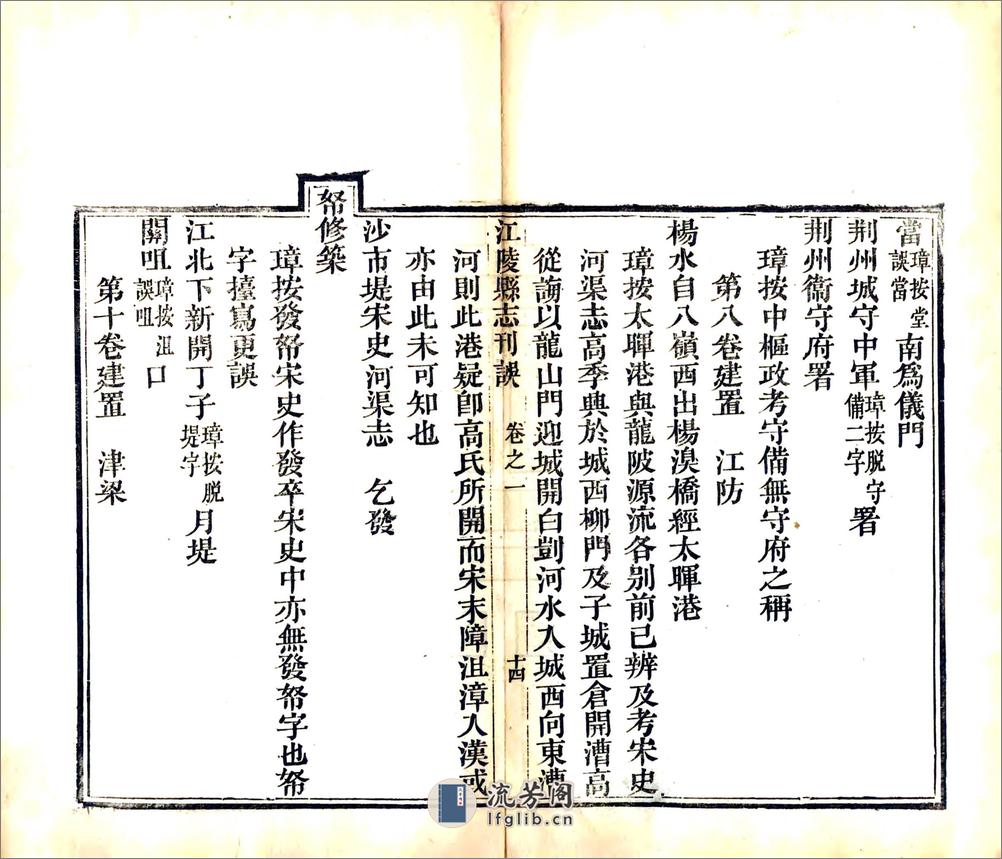 當璋按堂誤當南爲儀門
荆州城守中軍璋按脫守備二字署
荆州衞守府署
璋按中樞政考守備無守府之稱
第八卷建置　江防
楊水自八嶺西出楊溴橋經太暉港
璋按太暉港與龍陂源流各别前已辨及考宋史
河渠志高季興於城西柳門及子城置倉開漕高
從誨以龍山門迎城開白剅河水入城西向東漕
江陵縣志刊誤　卷之一　十四
河則此港疑卽高氏所開而宋末障沮漳入漢或
亦由此未可知也
沙市堤宋史河渠志　乞發
帑修築
璋按發帑宋史作發卒宋史中亦無發帑字也帑
字擅寫更誤
江北下新開丁子璋按脫堤字月堤
關咀璋按沮誤咀口
第十卷建置　津梁
流芳阁
lfglib.cn